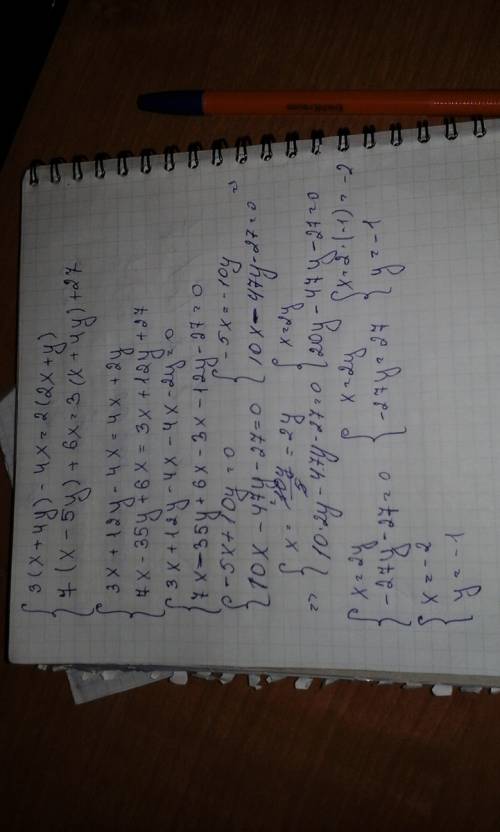 { 3(x+4y) - 4x = 2(2x+y)
{ 7(x-5y) + 6x = 3(x+4y) + 27
{ 3x + 12y - 4x = 4x + 2y
{ 7x - 35y + 6x = 3x + 12y + 27
{ 3x + 12y - 4x - 4x - 2y = 0
{ 7x - 35y + 6x - 3x - 12y - 27 = 0
{ -5x + 10y = 0 { -5x = -10y
{ 10x - 47y - 27 = 0 { 10x - 47y - 27 = 0 =>
=> { x = 10y/5 = 2y { x = 2y
{ 10·2y - 47y - 27 = 0 { 20y - 47y - 27 = 0
{ x = 2y { x = 2y { x = 2·(-1) = -2
{ -27y - 27 = 0 { -27y = 27 { y = -1
{ x = -2
{ y = -1